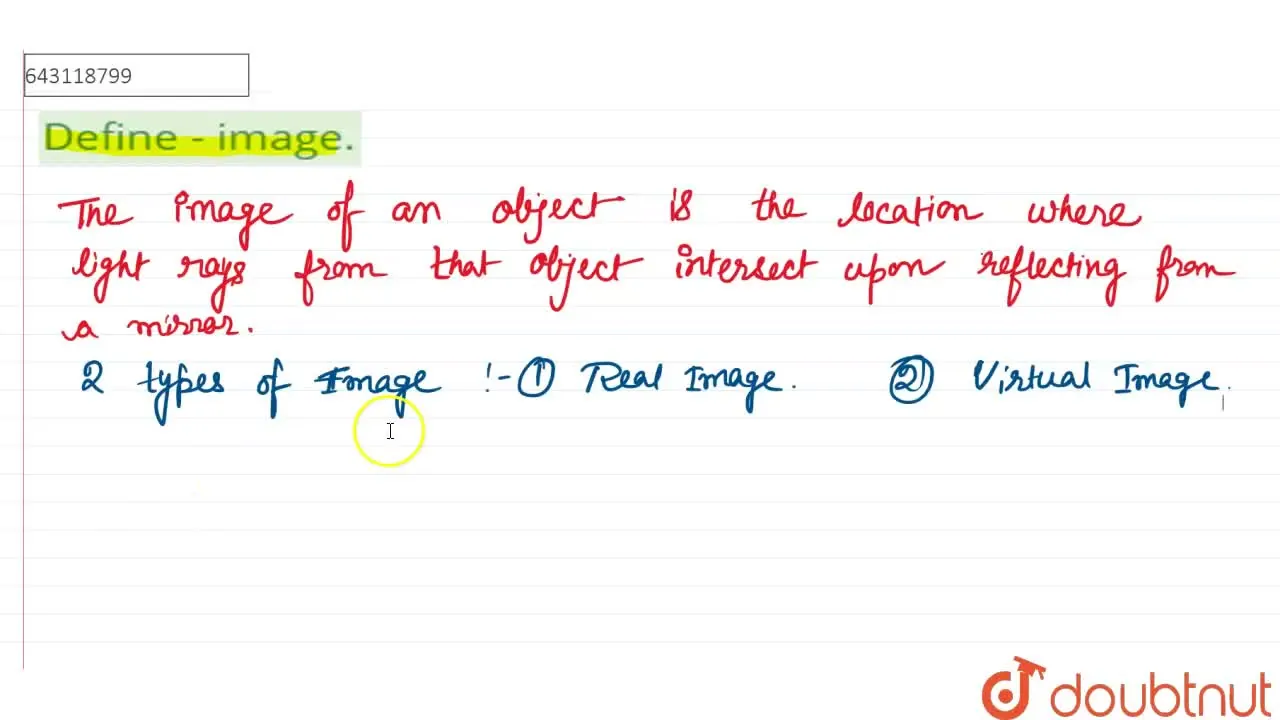 643118799
Define - image.
The image of an object is the location where
light rays from that object intersect upon reflecting from
a mirror.
2 types of Image :- ① Real Image. ② Virtual Image.
doubtnut